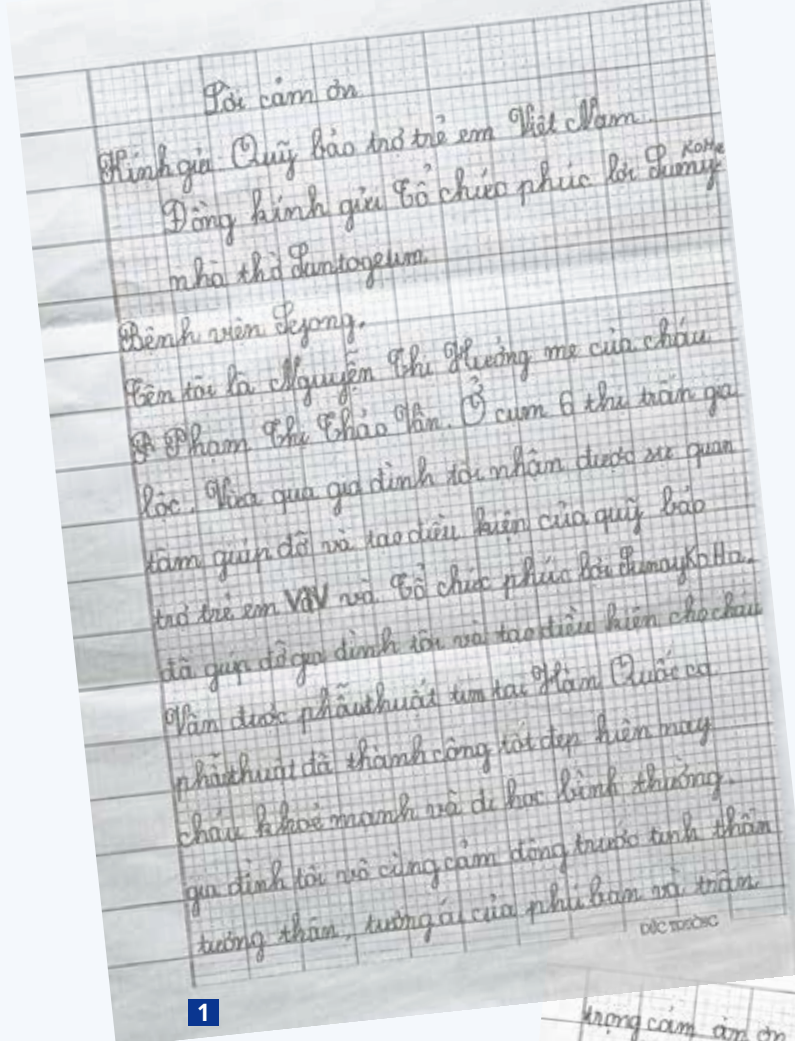 Lời cảm ơn
Kính gửi Quỹ bảo trợ trẻ em Việt Nam.
Đồng kính gửi Tổ chức phúc lợi Sumny KoHa
nhà thờ Suntogeum.
Bệnh viện Sejong.
Tên tôi là Nguyễn Thị Hưởng mẹ của cháu
Phạm Thị Thảo Vân. Ở cụm 6 thị trấn gia
lộc. Vừa qua gia đình tôi nhận được sự quan
tâm giúp đỡ và tạo điều kiện của quỹ bảo
trợ trẻ em VN và Tổ chức phúc lợi SumayKoHa.
đã giúp đỡ gia đình tôi và tạo điều kiện cho cháu
Vân được phẫu thuật tim tại Hàn Quốc ca
phẫu thuật đã thành công tốt đẹp hiện nay
cháu khoẻ mạnh và đi học bình thường.
gia đình tôi vô cùng cảm động trước tinh thần
tương thân, tương ái của phú ban và trân
trọng cảm ơn
1